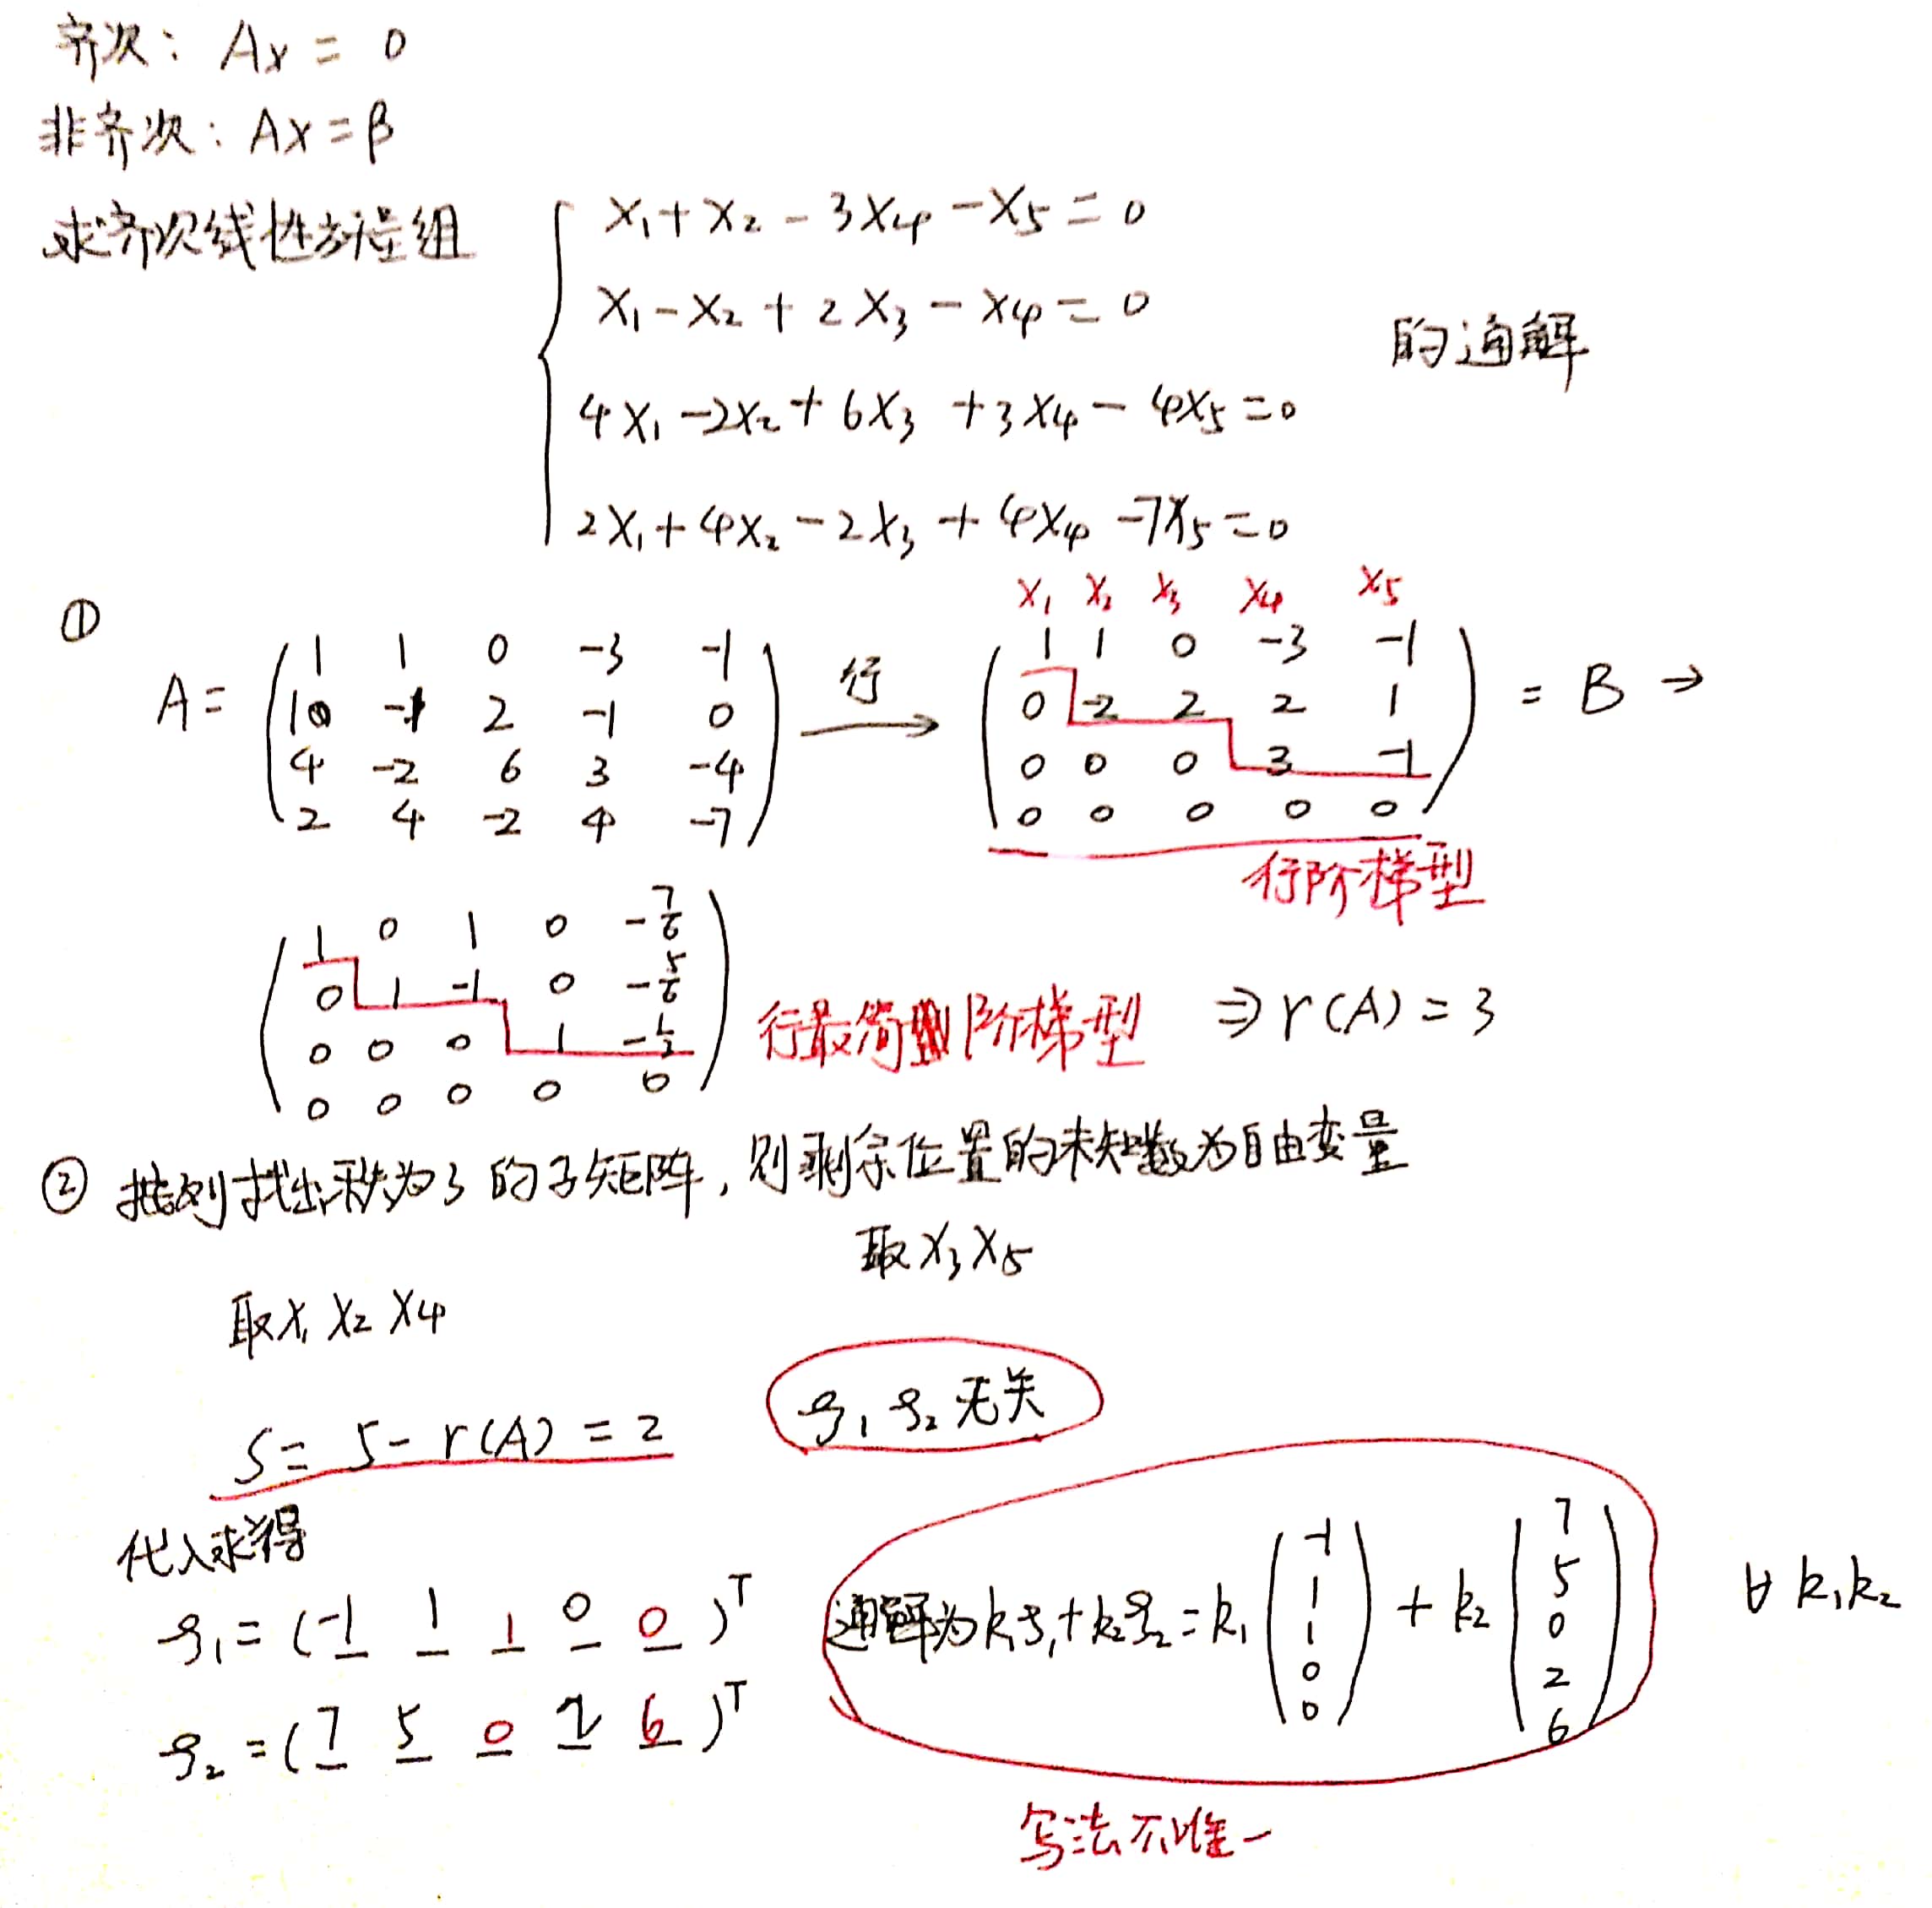 齐次: Ax = 0
非齐次: Ax = β
求齐次线性方程组
x₁ + x₂ - 3x₄ - x₅ = 0
x₁ - x₂ + 2x₃ - x₄ = 0
的通解
4x₁ - 2x₂ + 6x₃ + 3x₄ - 4x₅ = 0
2x₁ + 4x₂ - 2x₃ + 4x₄ - 7x₅ = 0
①
x₁ x₂ x₃ x₄ x₅
A = ( 1 1 0 -3 -1 ) 行 → ( 1 1 0 -3 -1 ) = B →
( 1 -1 2 -1 0 ) ( 0 -2 2 2 1 )
( 4 -2 6 3 -4 ) ( 0 0 0 3 -1 )
( 2 4 -2 4 -7 ) ( 0 0 0 0 0 )
行阶梯型
( 1 0 1 0 -7/6 )
( 0 1 -1 0 -5/6 )
( 0 0 0 1 -1/3 )
( 0 0 0 0 0 )
行最简阶梯型 ⇒ r(A) = 3
② 按列找出秩为3的子矩阵, 则剩余位置的未知数为自由变量
取 x₃ x₅
取 x₁ x₂ x₄
S = 5 - r(A) = 2
ξ₁ ξ₂ 无关
代入求得
ξ₁ = ( -1 1 1 0 0 )ᵀ
ξ₂ = ( 7 5 0 2 6 )ᵀ
通解为 k₁ξ₁ + k₂ξ₂ = k₁ ( -1 1 1 0 0 ) + k₂ ( 7 5 0 2 6 ) ∀ k₁k₂
写法不唯一